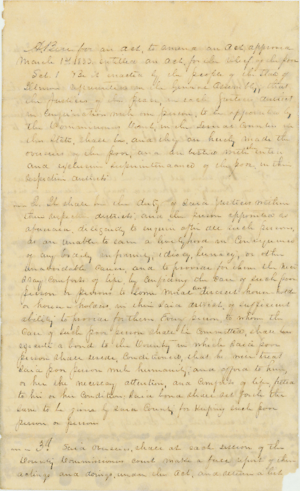 A Bill for an Act, to amend an Act, approved
March 1st 1833 entitled an Act, for the relief of the poor
Sec 1 Be it enacted by the people of the State of
Illinois, represented in the General Assembly, that
the Justices of the Peace, in each Justices district
in conjunction with one person, to be appointed by
the Commissioners Court, in the several Counties in
this State, shall be, and they are hereby made the
overseers of the poor, and are vested with entire
and exclusive superintendence of the poor, in their
respective districts
2. It shall be the duty of said Justices within
their respective districts, and the person appointed as
aforesaid, diligently to enquire after all such persons,
as are unable to earn a livelihood in consequence
of any bodily infirmity, idiocy, lunacy, or other
unavoidable cause, and to provide for them the
necessary comforts of life, by confiding the care of such poor
person or persons to some moral discreet house
or householders within said district, of sufficient
ability to provide for them. Every person to whom the
care of such poor person shall be committed, shall
execute a bond to the County in which said poor
person shall reside, Conditioned, that he will treat
said poor person with humanity, and afford to him,
or her the necessary attention, and comforts of life, suited
to his or her condition, said bond shall set forth the
sum to be given by said County for keeping such poor
person or persons
3d Said overseers, shall at each session of the
County Commissioners court, make a true report of their
actings and doings, under this Act, and return a list